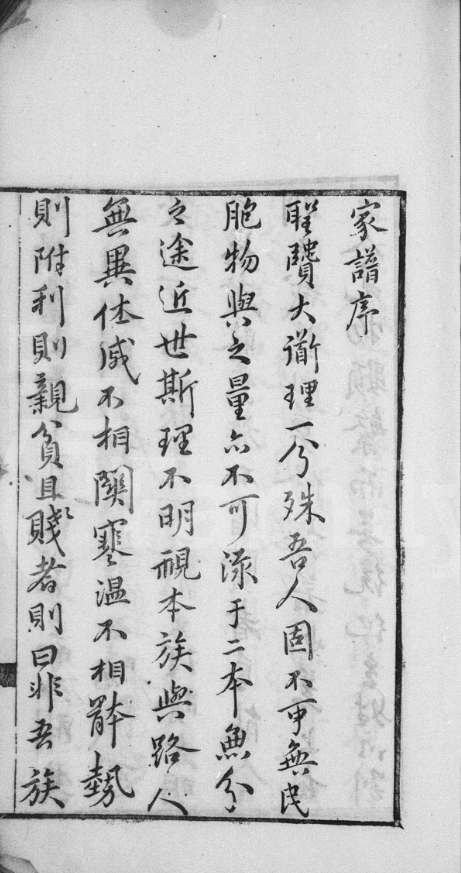 家譜序
聖賢大衜理一分殊吾人固不可無民
胞物與之量亦不可流于二本兼分
之途近世斯理不明視本族與路人
無異休戚不相關寒温不相龢勢
則附利則親貧且賤者則曰非吾族